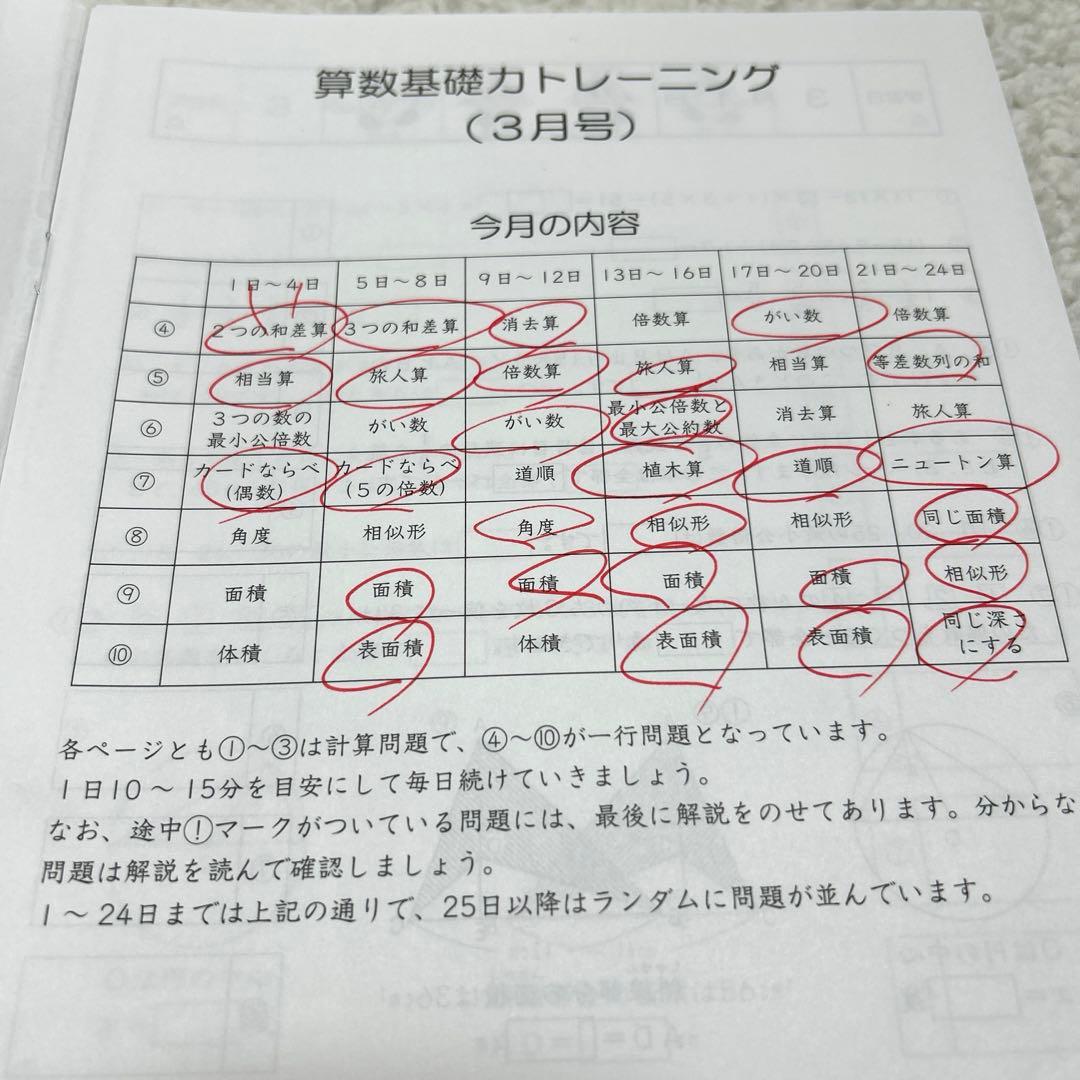 算数基礎力トレーニング
（３月号）
今月の内容
１日～４日 ５日～８日 ９日～12日 13日～16日 17日～20日 21日～24日
④ ２つの和差算 ３つの和差算 消去算 倍数算 がい数 倍数算
⑤ 相当算 旅人算 倍数算 旅人算 相当算 等差数列の和
⑥ ３つの数の最小公倍数 がい数 がい数 最小公倍数と最大公約数 消去算 旅人算
⑦ カードならべ(偶数) カードならべ(５の倍数) 道順 植木算 道順 ニュートン算
⑧ 角度 相似形 角度 相似形 相似形 同じ面積
⑨ 面積 面積 面積 面積 面積 相似形
⑩ 体積 表面積 体積 表面積 表面積 同じ深さにする
各ページとも①～③は計算問題で、④～⑩が一行問題となっています。
１日10～15分を目安にして毎日続けていきましょう。
なお、途中!マークがついている問題には、最後に解説をのせてあります。分からな
問題は解説を読んで確認しましょう。
１～24日までは上記の通りで、25日以降はランダムに問題が並んでいます。